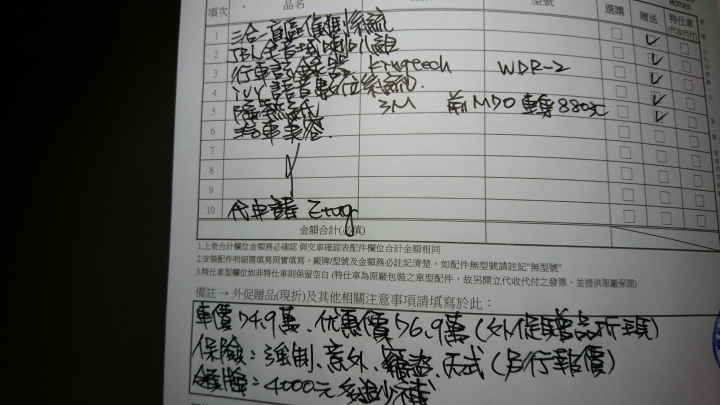 項次 品名 型號 選購 贈送 特仕車(代收代付)
1 三合一盲區偵測系統
2 JBL全音域喇叭組
3 行車記錄器 Kingtech WDR-2
4 IVY語音數位系統
5 隔熱紙 3M 前MD0 車身880元
6 若車業務
7
8
9
10 代申請 Etag
金額合計(必填)
1.上表合計欄位金額務必確認 與交車確認表配件欄位合計金額相同
2.安裝配件明細需填寫照實填寫，廠牌/型號及金額務必註記清楚，如配件無型號請註記"無型號"
3.特仕車型欄位如非特仕車則保留空白 (特仕車為原廠包裝之車型配件，故另開立代收代付之發票，並提供原廠保固)
備註→外促贈品(現折)及其他相關注意事項請填寫於此：
車價74.9萬、优惠價56.9萬(外促贈品折現)
保險：強制、意外、竊盜、丙式(另行報價)
領牌：4000元多退少補